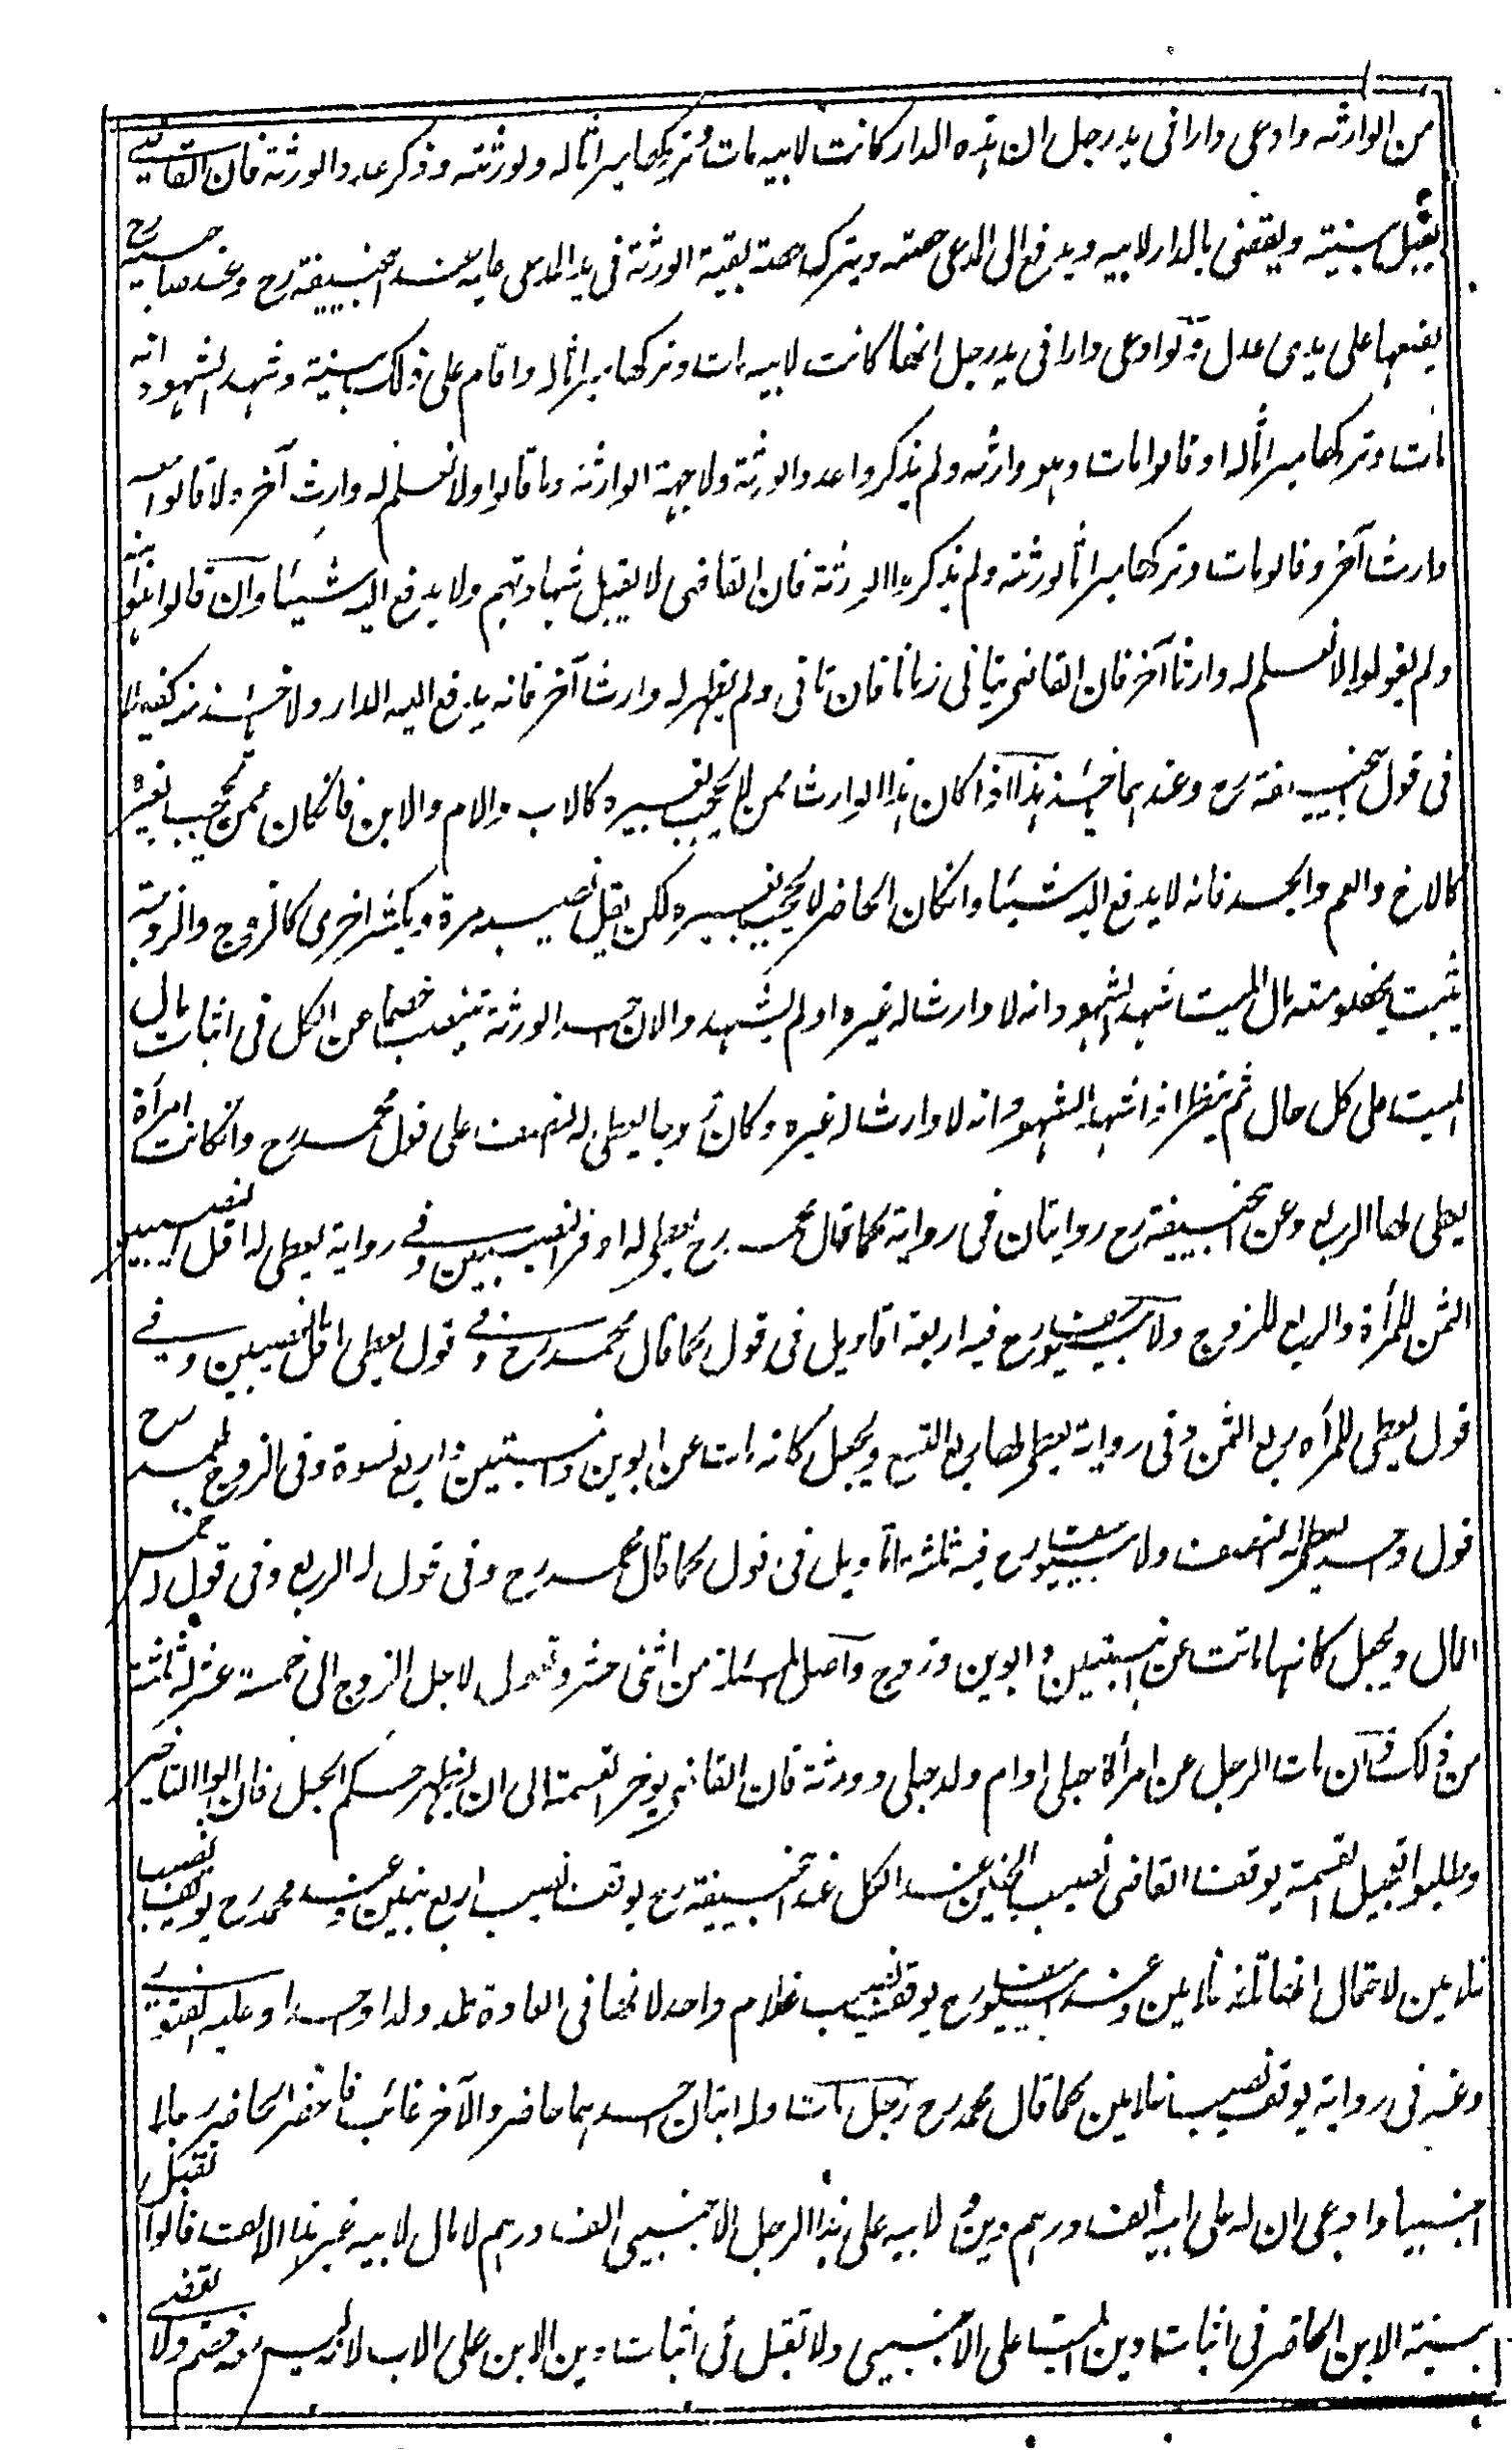 من الوارثه وادعى دارا فى يد رجل ان هذه الدار كانت لابيه مات وتركها ميراثا له ولورثته وذكر عدد الورثة فان القاضي
يقبل بينته ويقضى بالدار لابيه ويدفع الى المدعى حصته ويترك حصة بقية الورثة فى يد المدعى عليه عند ابيحنيفة رح وعند صاحبيه رح
يضعها على يدى عدل ولو ادعى دارا فى يد رجل انها كانت لابيه مات وتركها ميراثا له واقام على ذلك بينة وشهد الشهود انه
مات وتركها ميراثا له او قالوا مات وهو وارثه ولم يذكروا عدد الورثة ولا جهة الوارثة وما قالوا ولا نعلم له وارث آخر ولا قالوا
وارث آخر وقالوا مات وتركها ميراثا لورثته ولم يذكروا الورثة فان القاضى لا يقبل شهادتهم ولا يدفع اليه شيئا وان قالوا
ولم يقولوا لا نعلم له وارثا آخر فان القاضى يتانى زمانا فان تانى ولم يظهر له وارث آخر فانه يدفع اليه الدار ولا ياخذ منه كفيلا
فى قول ابيحنيفة رح وعندهما ياخذ هذا اذا كان هذا الوارث ممن لا يحجب بغيره كالاب والام والابن فانكان ممن يحجب بغيره
كالاخ والعم والجد فانه لا يدفع اليه شيئا وانكان الحاضر لا يحجب بغيره لكن يقل نصيبه مرة ويكثر اخرى كالزوج والزوجة
يثبت بخصومته مال الميت شهد الشهود انه لا وارث له غيره او لم يشهدوا لان احد الورثة ينتصب خصما عن الكل فى اثبات مال
الميت على كل حال ثم ينظر اذا شهد الشهود انه لا وارث له غيره وكان زوجا يعطى له النصف على قول محمد رح وانكانت امرأة
يعطى لها الربع وعن ابيحنيفة رح روايتان فى رواية كما قال محمد رح يعطى له اوفر النصيبين وفي رواية يعطى له اقل النصيبين
الثمن للمرأة والربع للزوج ولابييوسف رح فيه اربعة اقاويل فى قول كما قال محمد رح وفي قول يعطى اقل النصيبين وفي
قول يعطى للمرأة ربع الثمن وفى رواية يعطى لها ربع التسع ويجعل كانه مات عن ابوين وابنتين واربع نسوة وفى الزوج لمحمد رح
قول واحد يعطى له النصف ولابييوسف رح فيه ثلثة اقاويل فى قول كما قال محمد رح وفى قول له الربع وفى قول له خمس
المال ويجعل كانها ماتت عن ابنتين وابوين وزوج واصل المسئلة من اثنى عشر وتعول لاجل الزوج الى خمسة عشر له ثلثة
من ذلك وان مات الرجل عن امرأة حبلى او ام ولد حبلى وورثة فان القاضى يوخر القسمة الى ان يظهر حكم الحبل فان ابوا التاخير
وطلبوا تعجيل القسمة يوقف القاضى نصيب الجنين عند الكل عند ابيحنيفة رح يوقف نصيب اربع بنين وعند محمد رح يوقف نصيب
غلامين لاحتمال انها تلد غلامين وعند ابييوسف رح يوقف نصيب غلام واحد لانها فى العادة تلد ولدا واحدا وعليه الفتوى
وعنه فى رواية يوقف نصيب غلامين كما قال محمد رح رجل مات وله ابنان احدهما حاضر والآخر غائب فاحضر الحاضر رجلا
اجنبيا وادعى ان له على ابيه ألف درهم دين ولابيه على هذا الرجل الاجنبيى الف درهم لا مال لابيه غير هذا الالف قالوا تقبل
بينة الابن الحاضر فى اثبات دين الميت على الاجنبيى ولا تقبل فى اثبات دين الابن على الاب لانه ليس معه خصم ولا يقضي